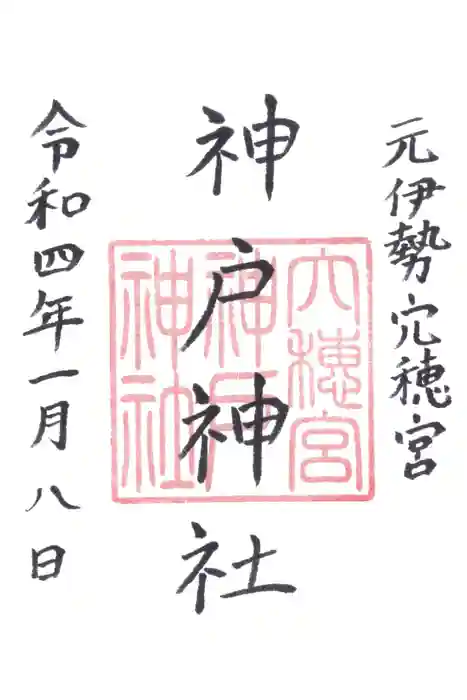 元伊勢穴穂宮
神戸神社
穴穂宮
神戸
神社
令和四年一月八日